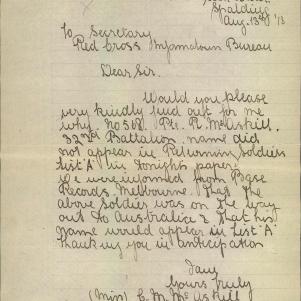 Spalding
Aug. 13th '18
To Secretary
Red Cross Information Bureau
Dear Sir.
Would you please
very kindly find out for me
why No 568. Pte. R. McAskill.
32nd Battalion. name did
not appear in Returning soldiers
list "A" in tonight's paper.
We were informed from Base
Records Melbourne. That the
above soldier was on the way
out to Australia & that his
name would appear in List "A"
thanking you in anticipation
I am
Yours truly
(Miss) E. M. McAskill